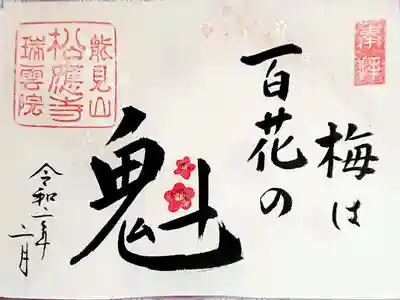 奉拝
梅は
百花の
魁
令和二年
二月
能見山
松應寺
瑞雲院